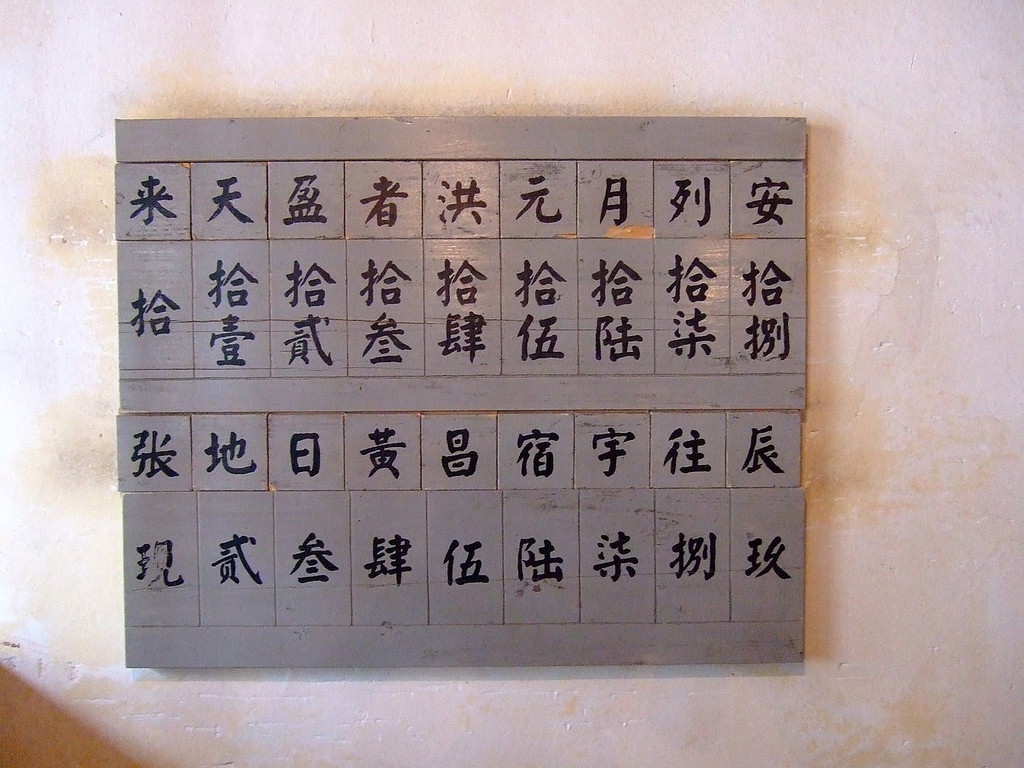 来 天 盈 者 洪 元 月 列 安
拾 拾壹 拾貳 拾叁 拾肆 拾伍 拾陆 拾柒 拾捌
张 地 日 黃 昌 宿 宇 往 辰
现 贰 叁 肆 伍 陆 柒 捌 玖